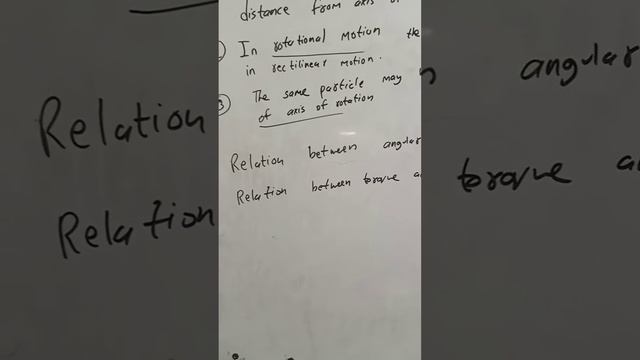 distance from axis o
In rotational motion the
in rectilinear motion.
③ The same particle may
of axis of rotation
Relation between angular
Relation between torque a
Relation
angular
Relation
torque a